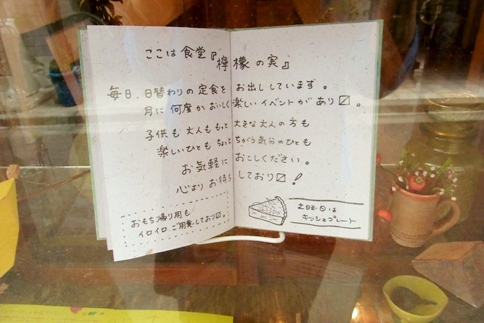 ここは食堂『檸檬の実』
毎日、日替わりの定食を お出ししています。
月に何度かおいしく楽しいイベントがあり〼。
子供も大人ももっと大きな大人の方も
楽しいひとも ちょっと ちがう気分のひとも
お気軽に おこしください。
心よりお待ちしており〼!
おもち帰り用も
イロイロご用意しており〼。
土日月・㊗は
キッシュプレート